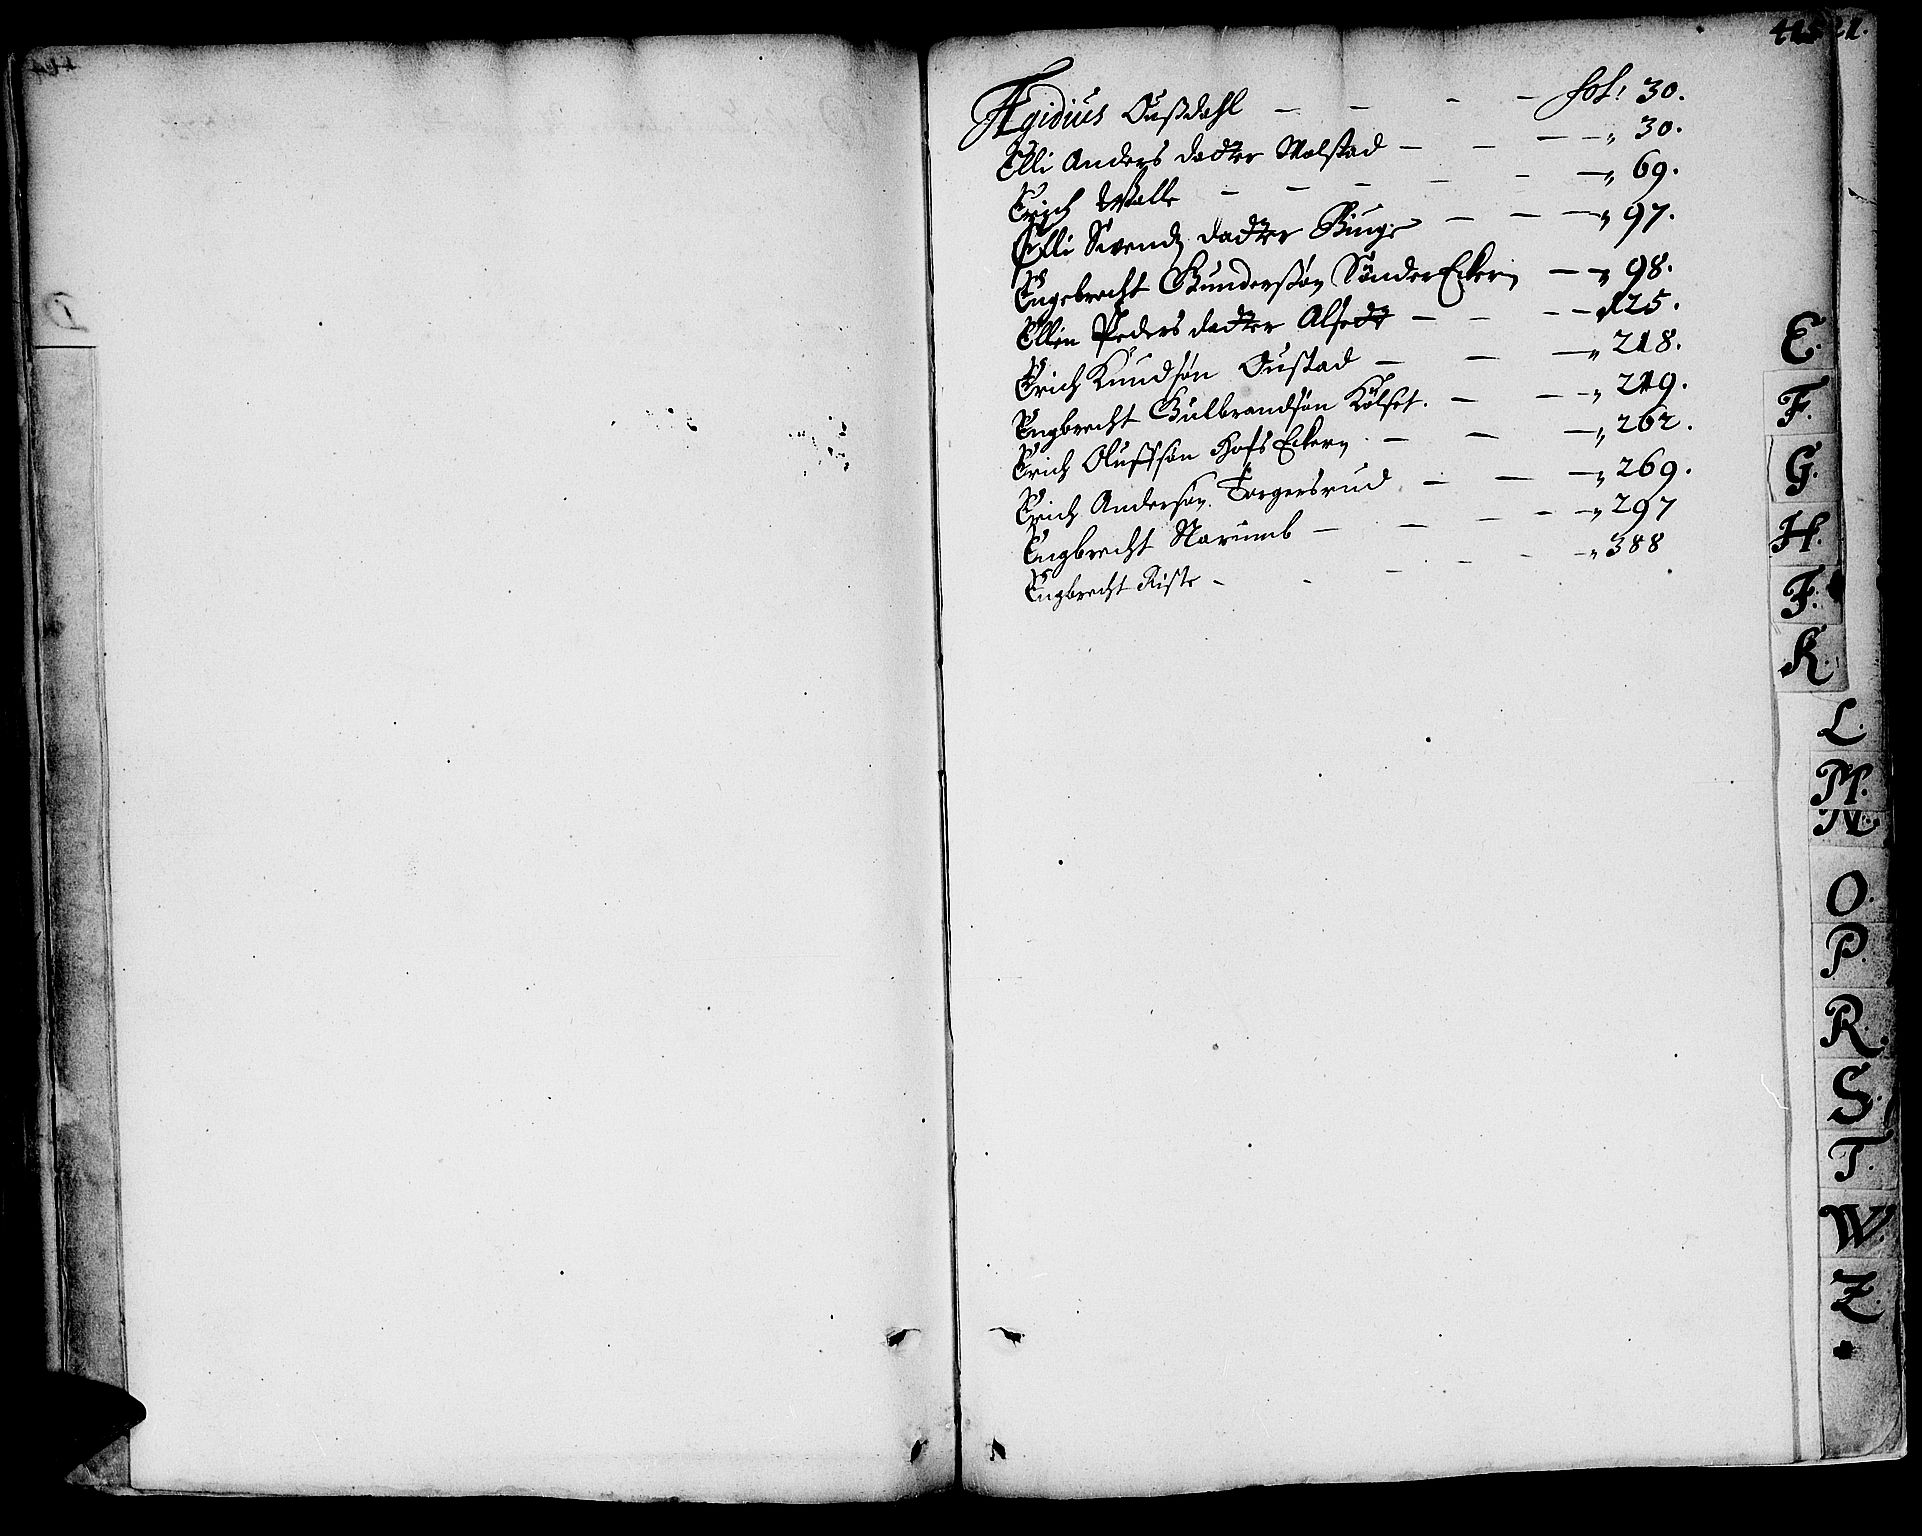 Ægidius Oußdahl — — - - fol: 30.
Elli Anders datter Molstad — - — — „ 30.
Erich Walle - — - - - — „ 69.
Elli Svends datter Binge — — — „ 97.
Engebrecht Gunderssøn Sønder Eckern — — „ 98.
Ellen Peders datter Alset — — - — „ 125.
Erich Knudsøn Oustad — — — „ 218.
Engbrecht Gulbrandsøn Kølset. — - — „ 219.
Erich Olufssøn Hofs Eckern - — — „ 262.
Erich Andersøn Torgersrud - — — — „ 269.
Engbrecht Narumb — - - - — „ 297
Engbrecht Riste - - - - - „ 388
E.
F.
G.
H.
F.
K.
L.
M.
N.
O.
P.
R.
S.
T.
W.
Z.